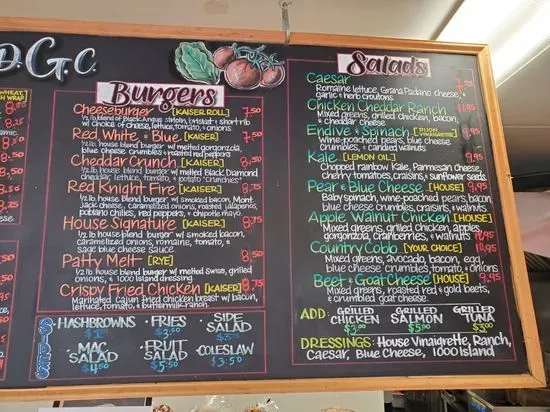 D.G.C.
WHEAT,
SH WRAP]
8.50
Burgers
Cheeseburger [KAISER ROLL] 7.50
1/2 lb. blend of Black Angus sirloin, brisket & short rib
w/ choice of cheese, lettuce, tomato, & onions
Red, White, & Blue [KAISER] 8.75
1/2 lb. house blend burger w/ melted gorgonzola,
blue cheese crumbles & roasted red peppers
Cheddar Crunch [KAISER] 8.50
1/2 lb. house blend burger w/ melted Black Diamond
cheddar, lettuce, tomato, & potato "crunchies"
Red Knight Fire [KAISER] 8.75
1/2 lb. house blend burger w/ smoked bacon, Mont.
Jack cheese, caramelized onions, roasted jalapeños,
poblano chilies, red peppers, & chipotle mayo.
House Signature [KAISER] 8.75
1/2 lb. house blend burger w/ smoked bacon,
caramelized onions, romaine, tomato, &
sack blue cheese sauce
Patty Melt [RYE] 8.50
1/2 lb. house blend burger w/ melted swiss, grilled
onions, & 1000 island dressing
Crispy Fried Chicken [KAISER] 8.75
Marinated Cajun fried chicken breast w/ bacon,
lettuce, tomato, & buttermilk ranch
SIDES
HASHBROWNS
FRIES
$2.50
SIDE
SALAD
MAC
SALAD
$4.50
FRUIT
SALAD
$5.50
COLESLAW
$3.50
Salads
Caesar 7.95
Romaine lettuce, Grana Padano cheese,
garlic & herb croutons
Chicken Cheddar Ranch 11.95
Mixed greens, grilled chicken, bacon,
& cheddar cheese
Endive & Spinach [DIJON VINAIGRETTE] 9.95
Wine-poached pears, blue cheese
crumbles, & candied walnuts
Kale [LEMON OIL] 8.95
Chopped rainbow Kale, Parmesan cheese
Cherry tomatoes, craisins, & sunflower seeds
Pear & Blue Cheese [HOUSE] 9.95
Baby spinach, wine-poached pears, bacon
blue cheese crumbles, craisins, & walnuts
Apple Walnut Chicken [HOUSE]
Mixed greens, grilled chicken, apples,
gorgonzola, cranberries, & walnuts 10.95
Country Cobb [YOUR CHOICE] 10.95
Mixed greens, avocado, bacon, egg,
blue cheese crumbles, tomato, & onions
Beet & Goat Cheese [HOUSE] 9.95
Mixed greens, roasted red & gold beets,
& crumbled goat cheese
ADD: GRILLED CHICKEN $3.00
GRILLED SALMON $5.00
GRILLED TUNA $3.00
DRESSINGS: House Vinaigrette, Ranch,
Caesar, Blue Cheese, 1000 Island